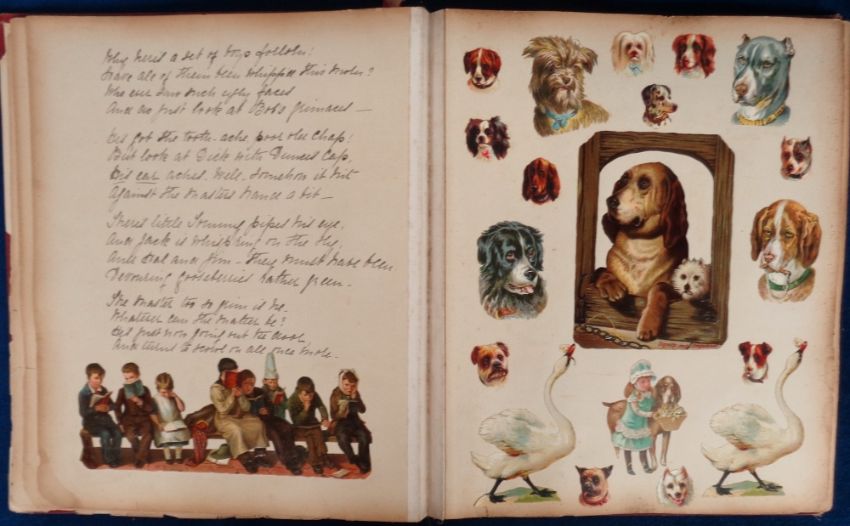 Why here's a set of boys forlorn!
Have all of them been whipped this morn?
Who ever saw such ugly faces
And do just look at Bob's grimaces —
He's got the tooth-ache poor old chap!
But look at Dick with Dunces Cap,
His ear aches. Well. Somehow it hit
Against the Masters hand a bit —
There's little Tommy pipes his eye,
And Jack is whisp'ring on the sly,
And Hal and Jim - They must have been
Devouring gooseberries rather green.
The Master too so grim is he,
Whatever can the matter be?
He's just now going out the door,
And turns to scowl on all once more.